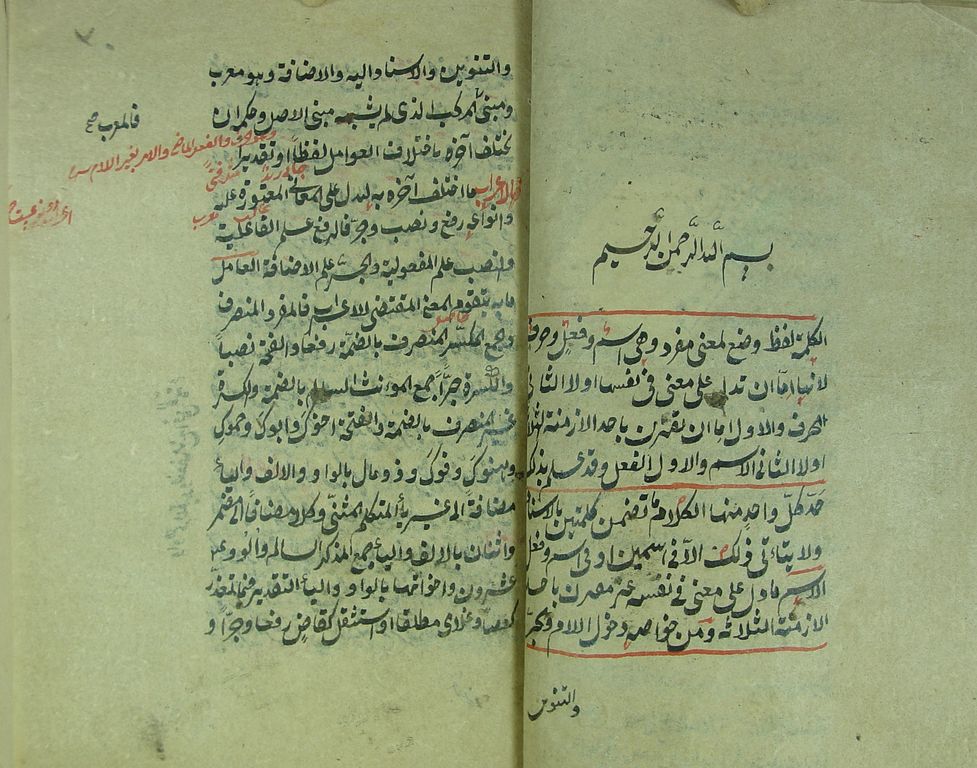 بسم الله الرحمن الرحيم
الكلمة لفظ وضع لمعنى مفرد وهى اسم وفعل وحرف
لانها اما ان تدل على معنى فى نفسها اولا الثانى
الحرف والاول اما ان تقترن باحد الازمنة الثلاثة
اولا الثانى الاسم والاول الفعل وقد علم بذلك
حد كل واحد منها الكلام ما تضمن كلمتين بالاسناد
ولا يتاتى ذلك الا فى اسمين او فى اسم وفعل
الاسم ما دل على معنى فى نفسه غير مقترن باحد
الازمنة الثلاثة ومن خواصه دخول اللام والجر
والتنوين
والتنوين والاسناد اليه والاضافة وهو معرب
ومبنى المركب الذى لم يشبه مبنى الاصل وحكمه ان
يختلف آخره باختلاف العوامل لفظا او تقديرا
الاعراب ما اختلف آخره به ليدل على المعانى المعتورة عليه
وانواعه رفع ونصب وجر فالرفع علم الفاعلية
والنصب علم المفعولية والجر علم الاضافة العامل
ما به يتقوم المعنى المقتضى للاعراب فالمفرد المنصرف
وجمع المكسر المنصرف بالضمة رفعا والفتحة نصبا
والكسرة جرا جمع المؤنث السالم بالضمة والكسرة
غير المنصرف بالضمة والفتحة اخوك وابوك وحموك
وهنوك وفوك وذو مال بالواو والالف والياء
مضافة الى غير ياء المتكلم المثنى وكلا مضافا الى مضمر
واثنان بالالف والياء جمع المذكر السالم والو و
عشرون واخواتها بالواو والياء التقدير فيما تعذر
كعصا وغلامى مطلقا او استثقل كقاض رفعا وجرا و
فالمعرب صح
والفعل الماضى والامر بغير اللام